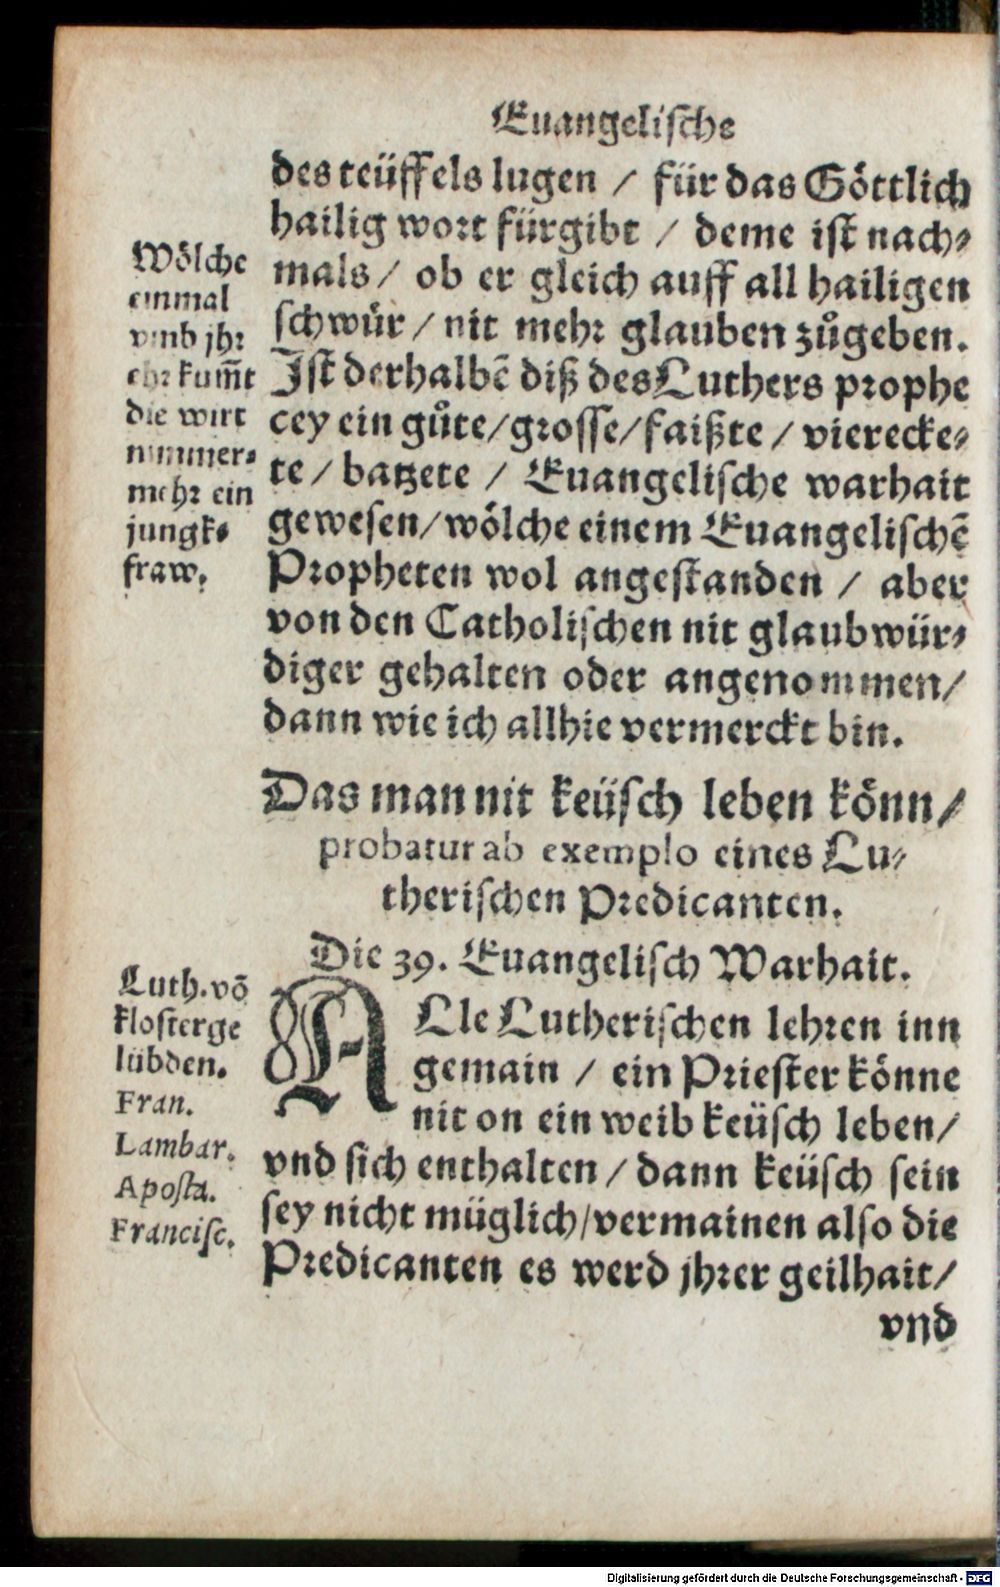 Euangelische
des teüffels lugen / für das Göttlich
hailig wort fürgibt / deme ist nach⸗
mals / ob er gleich auff all hailigen
schwür / nit mehr glauben zůgeben.
Ist derhalbē diß des Luthers prophe
cey ein gůte/grosse/faißte / vierecke⸗
te / batzete / Euangelische warhait
gewesen/wölche einem Euangelischē
Propheten wol angestanden / aber
von den Catholischen nit glaubwür⸗
diger gehalten oder angenommen/
dann wie ich allhie vermerckt bin.
Wölche
einmal
vmb jhr
ehr kum̃t
die wirt
nimmer⸗
mehr ein
jungk⸗
fraw.
Das man nit keüsch leben könn/
probatur ab exemplo eines Lu⸗
therischen Predicanten.
Die 39. Euangelisch Warhait.
ALle Lutherischen lehren inn
gemain / ein Priester könne
nit on ein weib keüsch leben/
vnd sich enthalten / dann keüsch sein
sey nicht müglich/vermainen also die
Predicanten es werd jhrer geilhait/
vnd
Luth. vō
klosterge
lübden.
Fran.
Lambar.
Aposta.
Francisc.
Digitalisierung gefördert durch die Deutsche Forschungsgemeinschaft - DFG